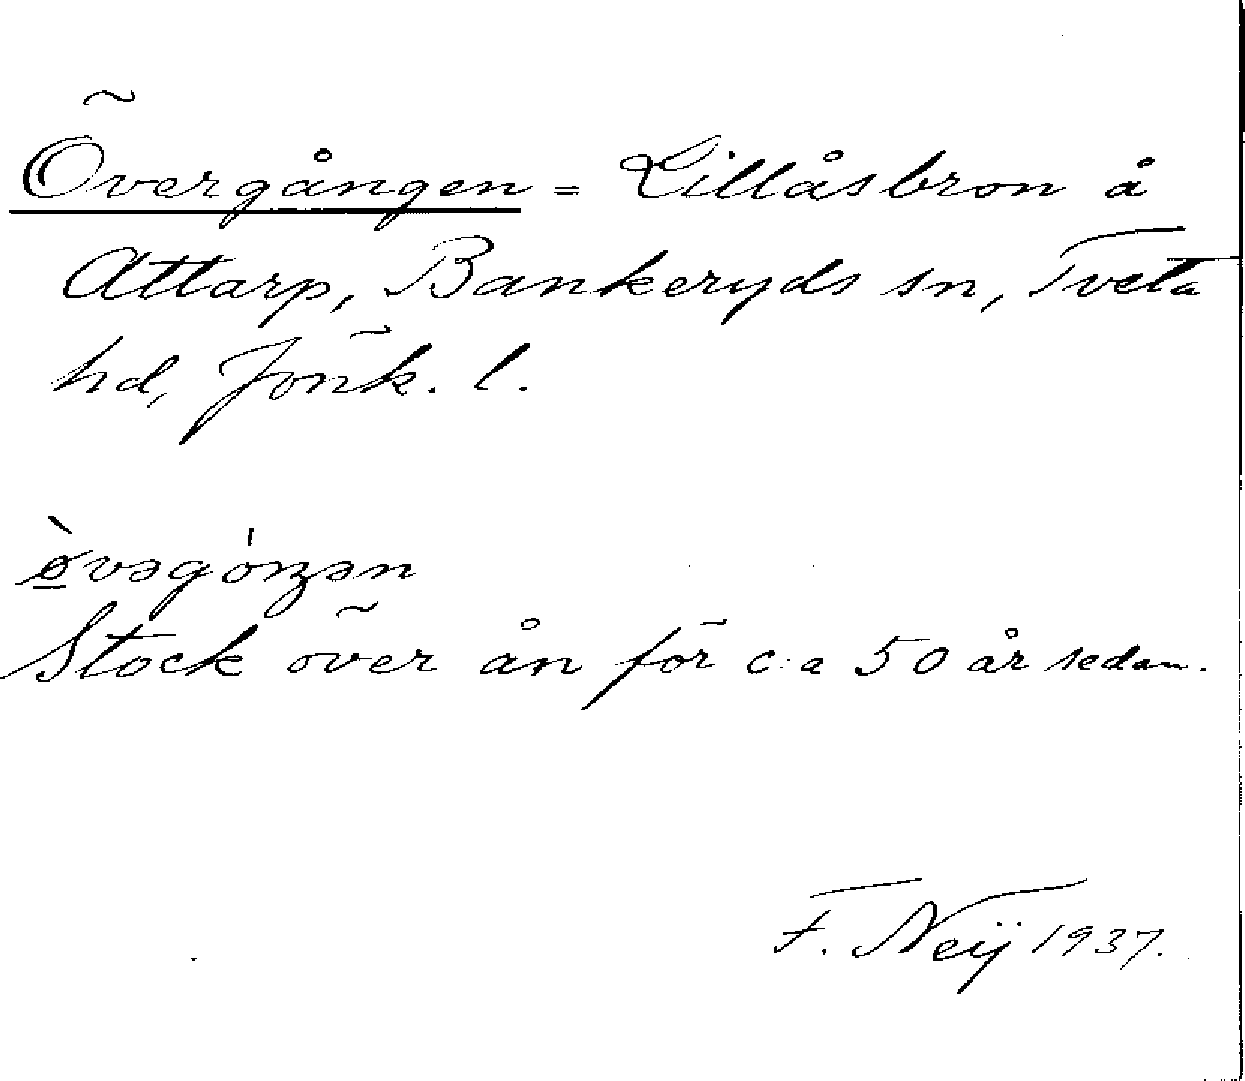 Övergången = Lillåsbron å
Attarp, Bankeryds sn, Tveta
hd, Jönk. l.
ø̀vəgóŋən
Stock över ån för c:a 50 år sedan.
F. Neij 1937.